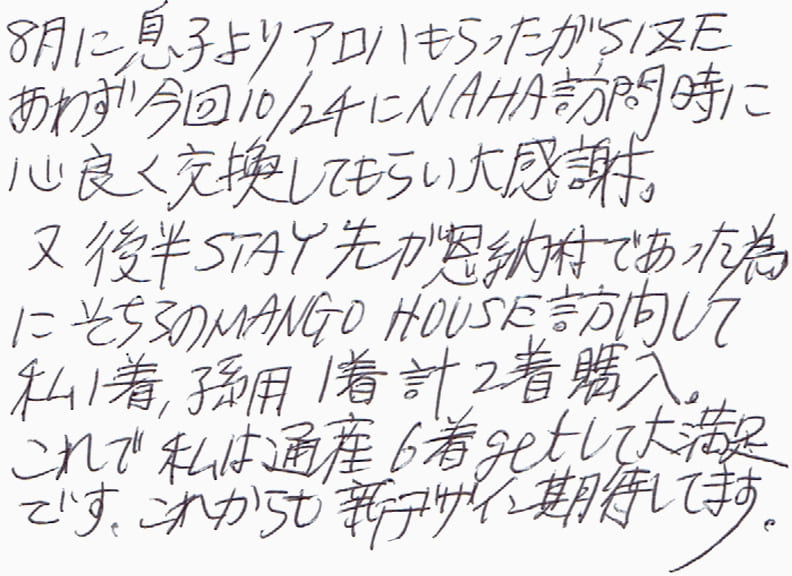 8月に息子よりアロハもらったがSIZE
あわず今回10/24にNAHA訪問時に
心良く交換してもらい大感謝。
又後半STAY先が恩納村であった為
にそちらのMANGO HOUSE訪問して
私1着,孫用1着計2着購入。
これで私は通産6着getして大満足
です。これからも新デザイン期待してます。